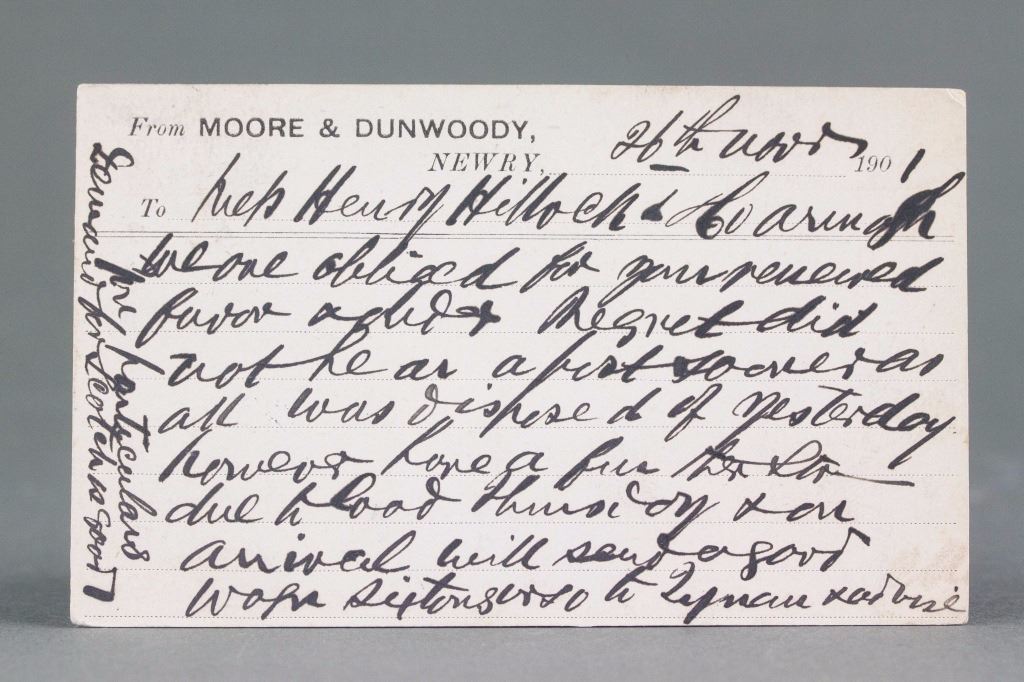 From MOORE & DUNWOODY,
NEWRY, 26th Novr 1901
To Mess Henry Hillock & Co Armagh
We are obliged for your renewed
favor Regret did
not hear a post sooner as
all was disposed of yesterday
however have a further
due to load Thursday & on
arrival will send a good
wagn six tons or so to & advise
for particulars
Demand for Scotch is good